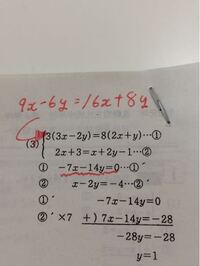 9x-6y=16x+8y
(3) { 3(3x-2y)=8(2x+y)…①
2x+3=x+2y-1…②
① -7x-14y=0…①´
② x-2y=-4…②´
①´ -7x-14y=0
②´×7 +) 7x-14y=-28
-28y=-28
y=1